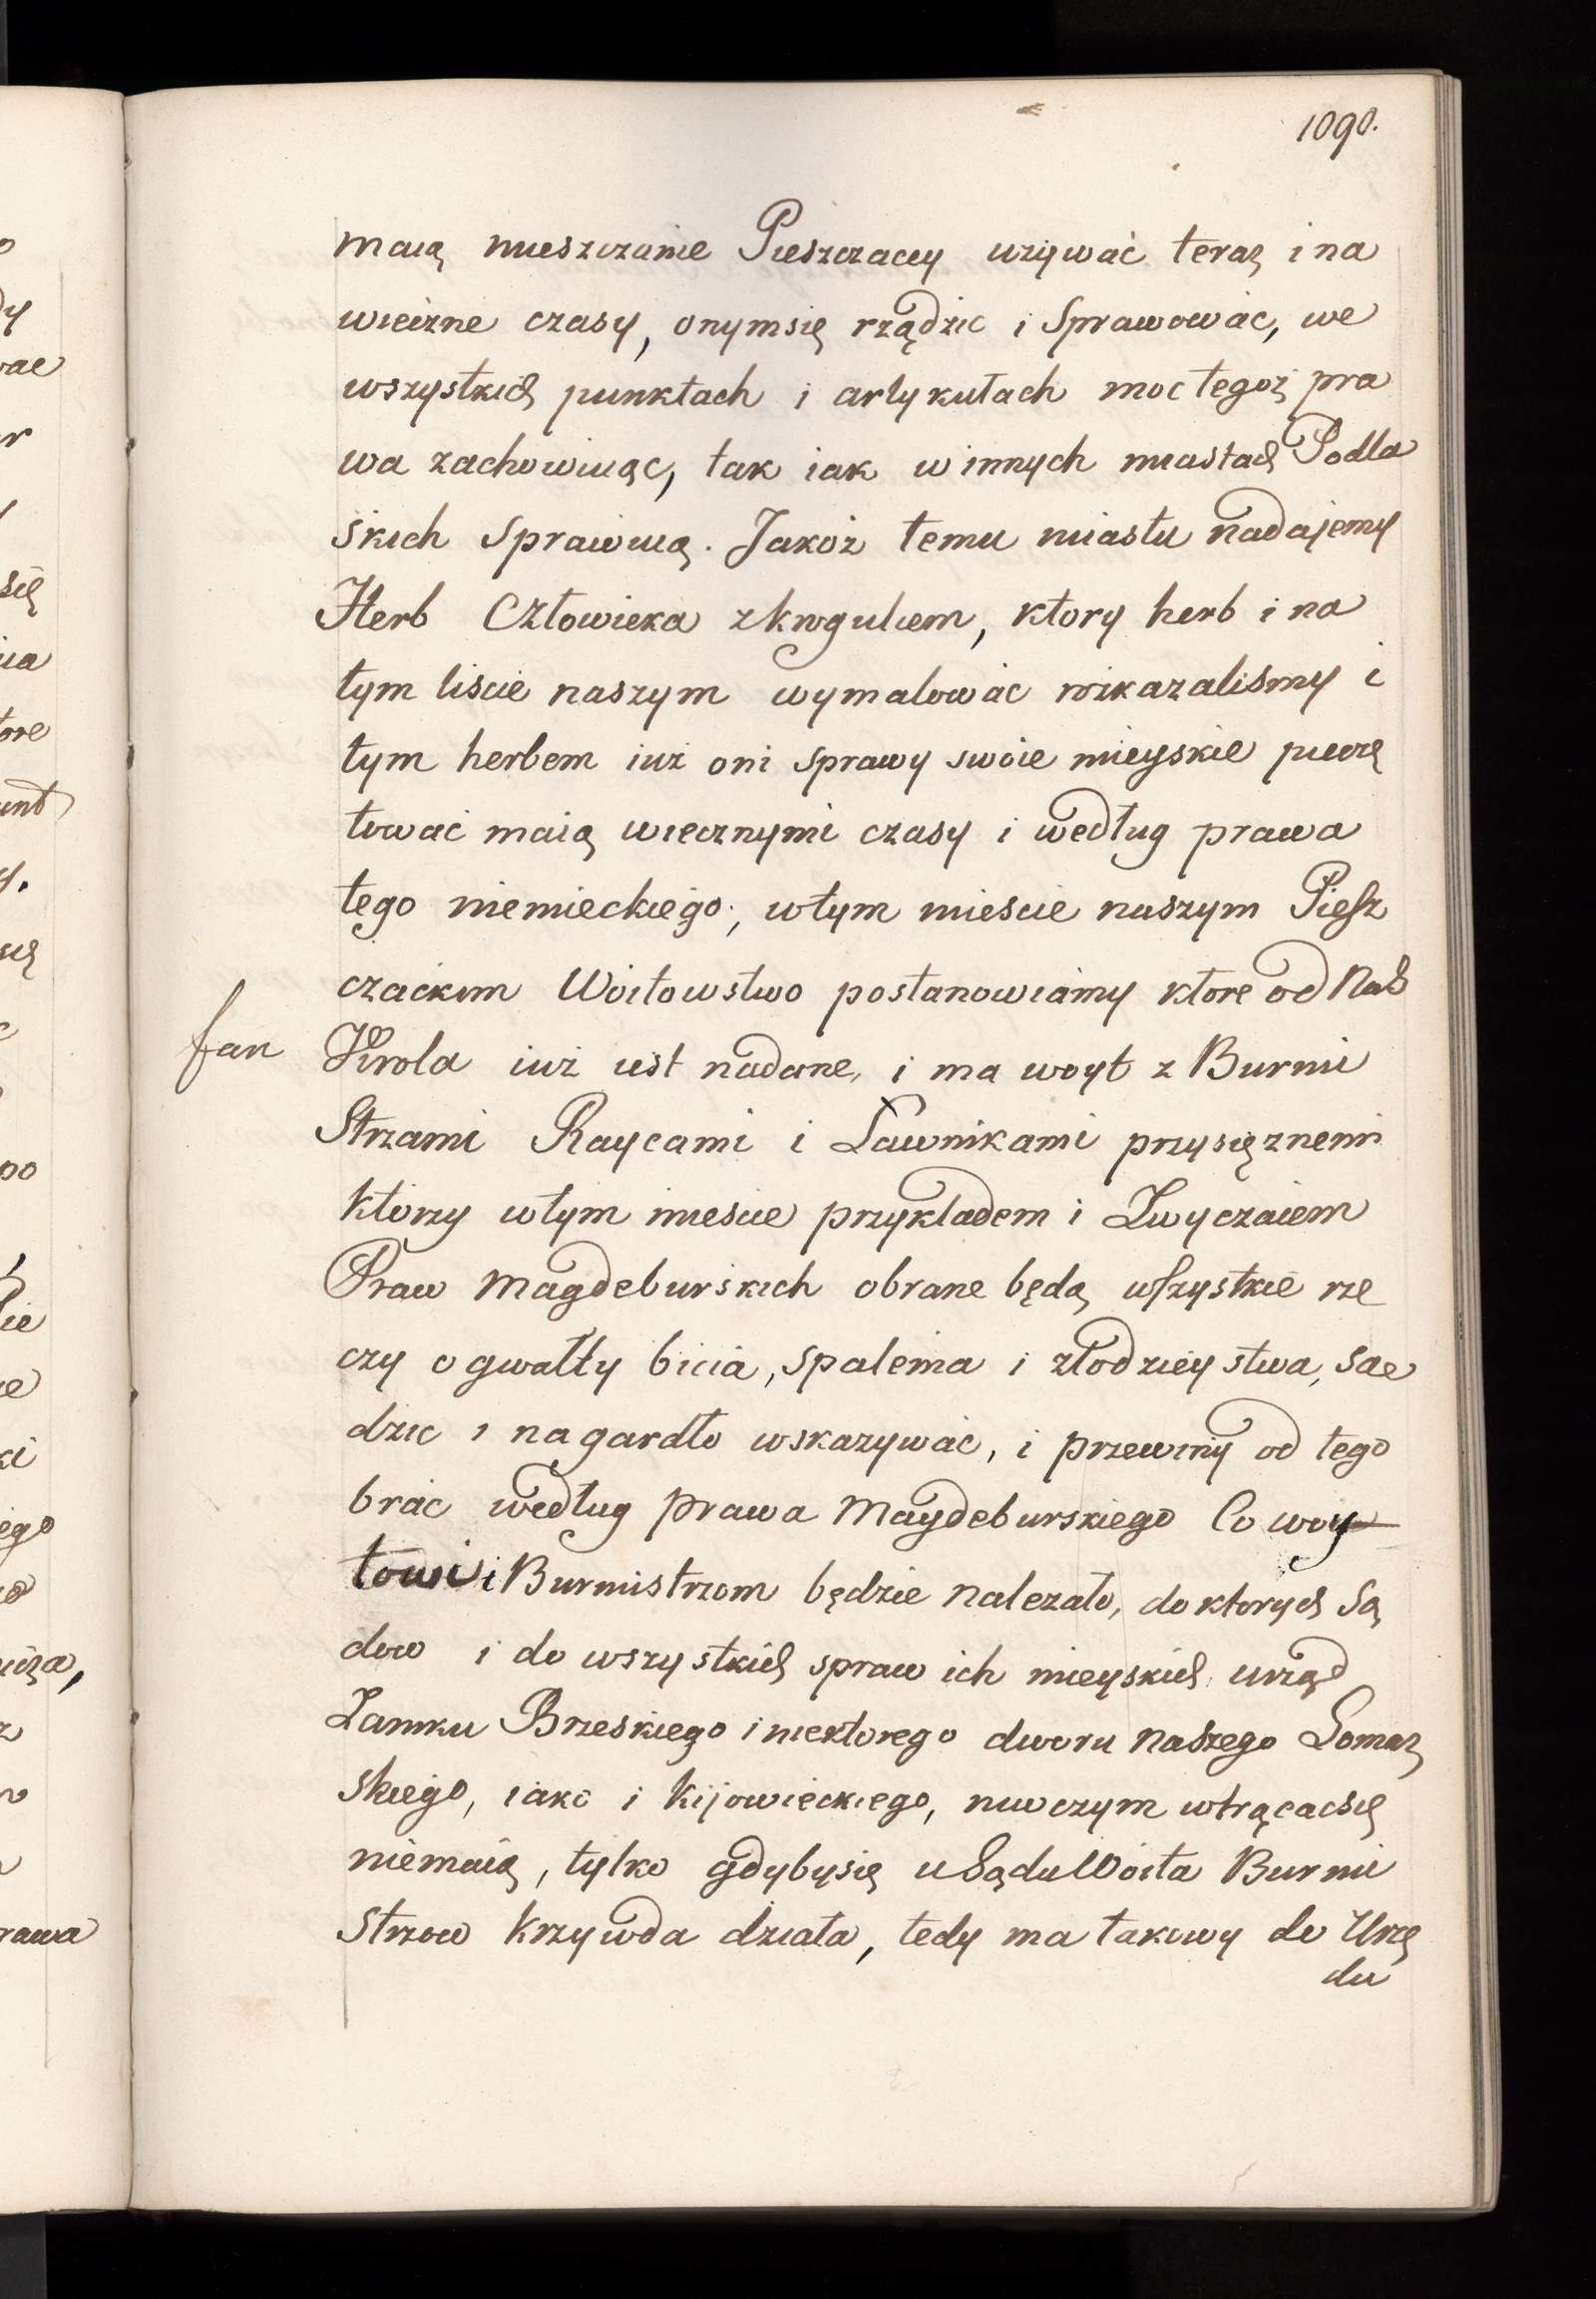 1090.
maią mieszczanie Pieszczaccy używać teraz i na
wieczne czasy, onymsię rządzic i Sprawowac, we
wszystkich punktach i artykułach moc tegoż pra
wa zachowuiąc, tak iak w innych miastach Podla
skich Sprawuią. Jakoż temu miastu nadajemy
Herb Człowieka z krogulcem, ktory herb i na
tym liscie naszym wymalowac roskazalismy i
tym herbem iuż oni sprawy swoie mieyskie pieczę
tować maią wiecznymi czasy i według prawa
tego niemieckiego, wtym miescie naszym Piesz
czackim Woitowstwo postanowiamy ktore od Nas
fan Krola iuż iest nadane, i ma woyt z Burmi
Strzami Raycami i Ławnikami przysięznemi
ktorzy wtym miescie przykladem i Zwyczaiem
Praw Magdeburskich obrane będą wszystkie rze
czy o gwałty bicia, spalenia i złodzieystwa, sae
dzic i na gardło wskazywać, i przewiny od tego
brac według prawa Maydeburskiego Co woy
towi i Burmistrzom będzie nalezało, do ktorych Są
dow i do wszystkich spraw ich mieyskich urząd
Zamku Brzeskiego i niektorego dworu naszego Łomaz
skiego, iako i Kijowieckiego, niwczym wtrącacsię
niemaią, tylko gdybysię u Sądu Woita Burmi
Strzow krzywda działa, tedy ma takowy do Urzę
du